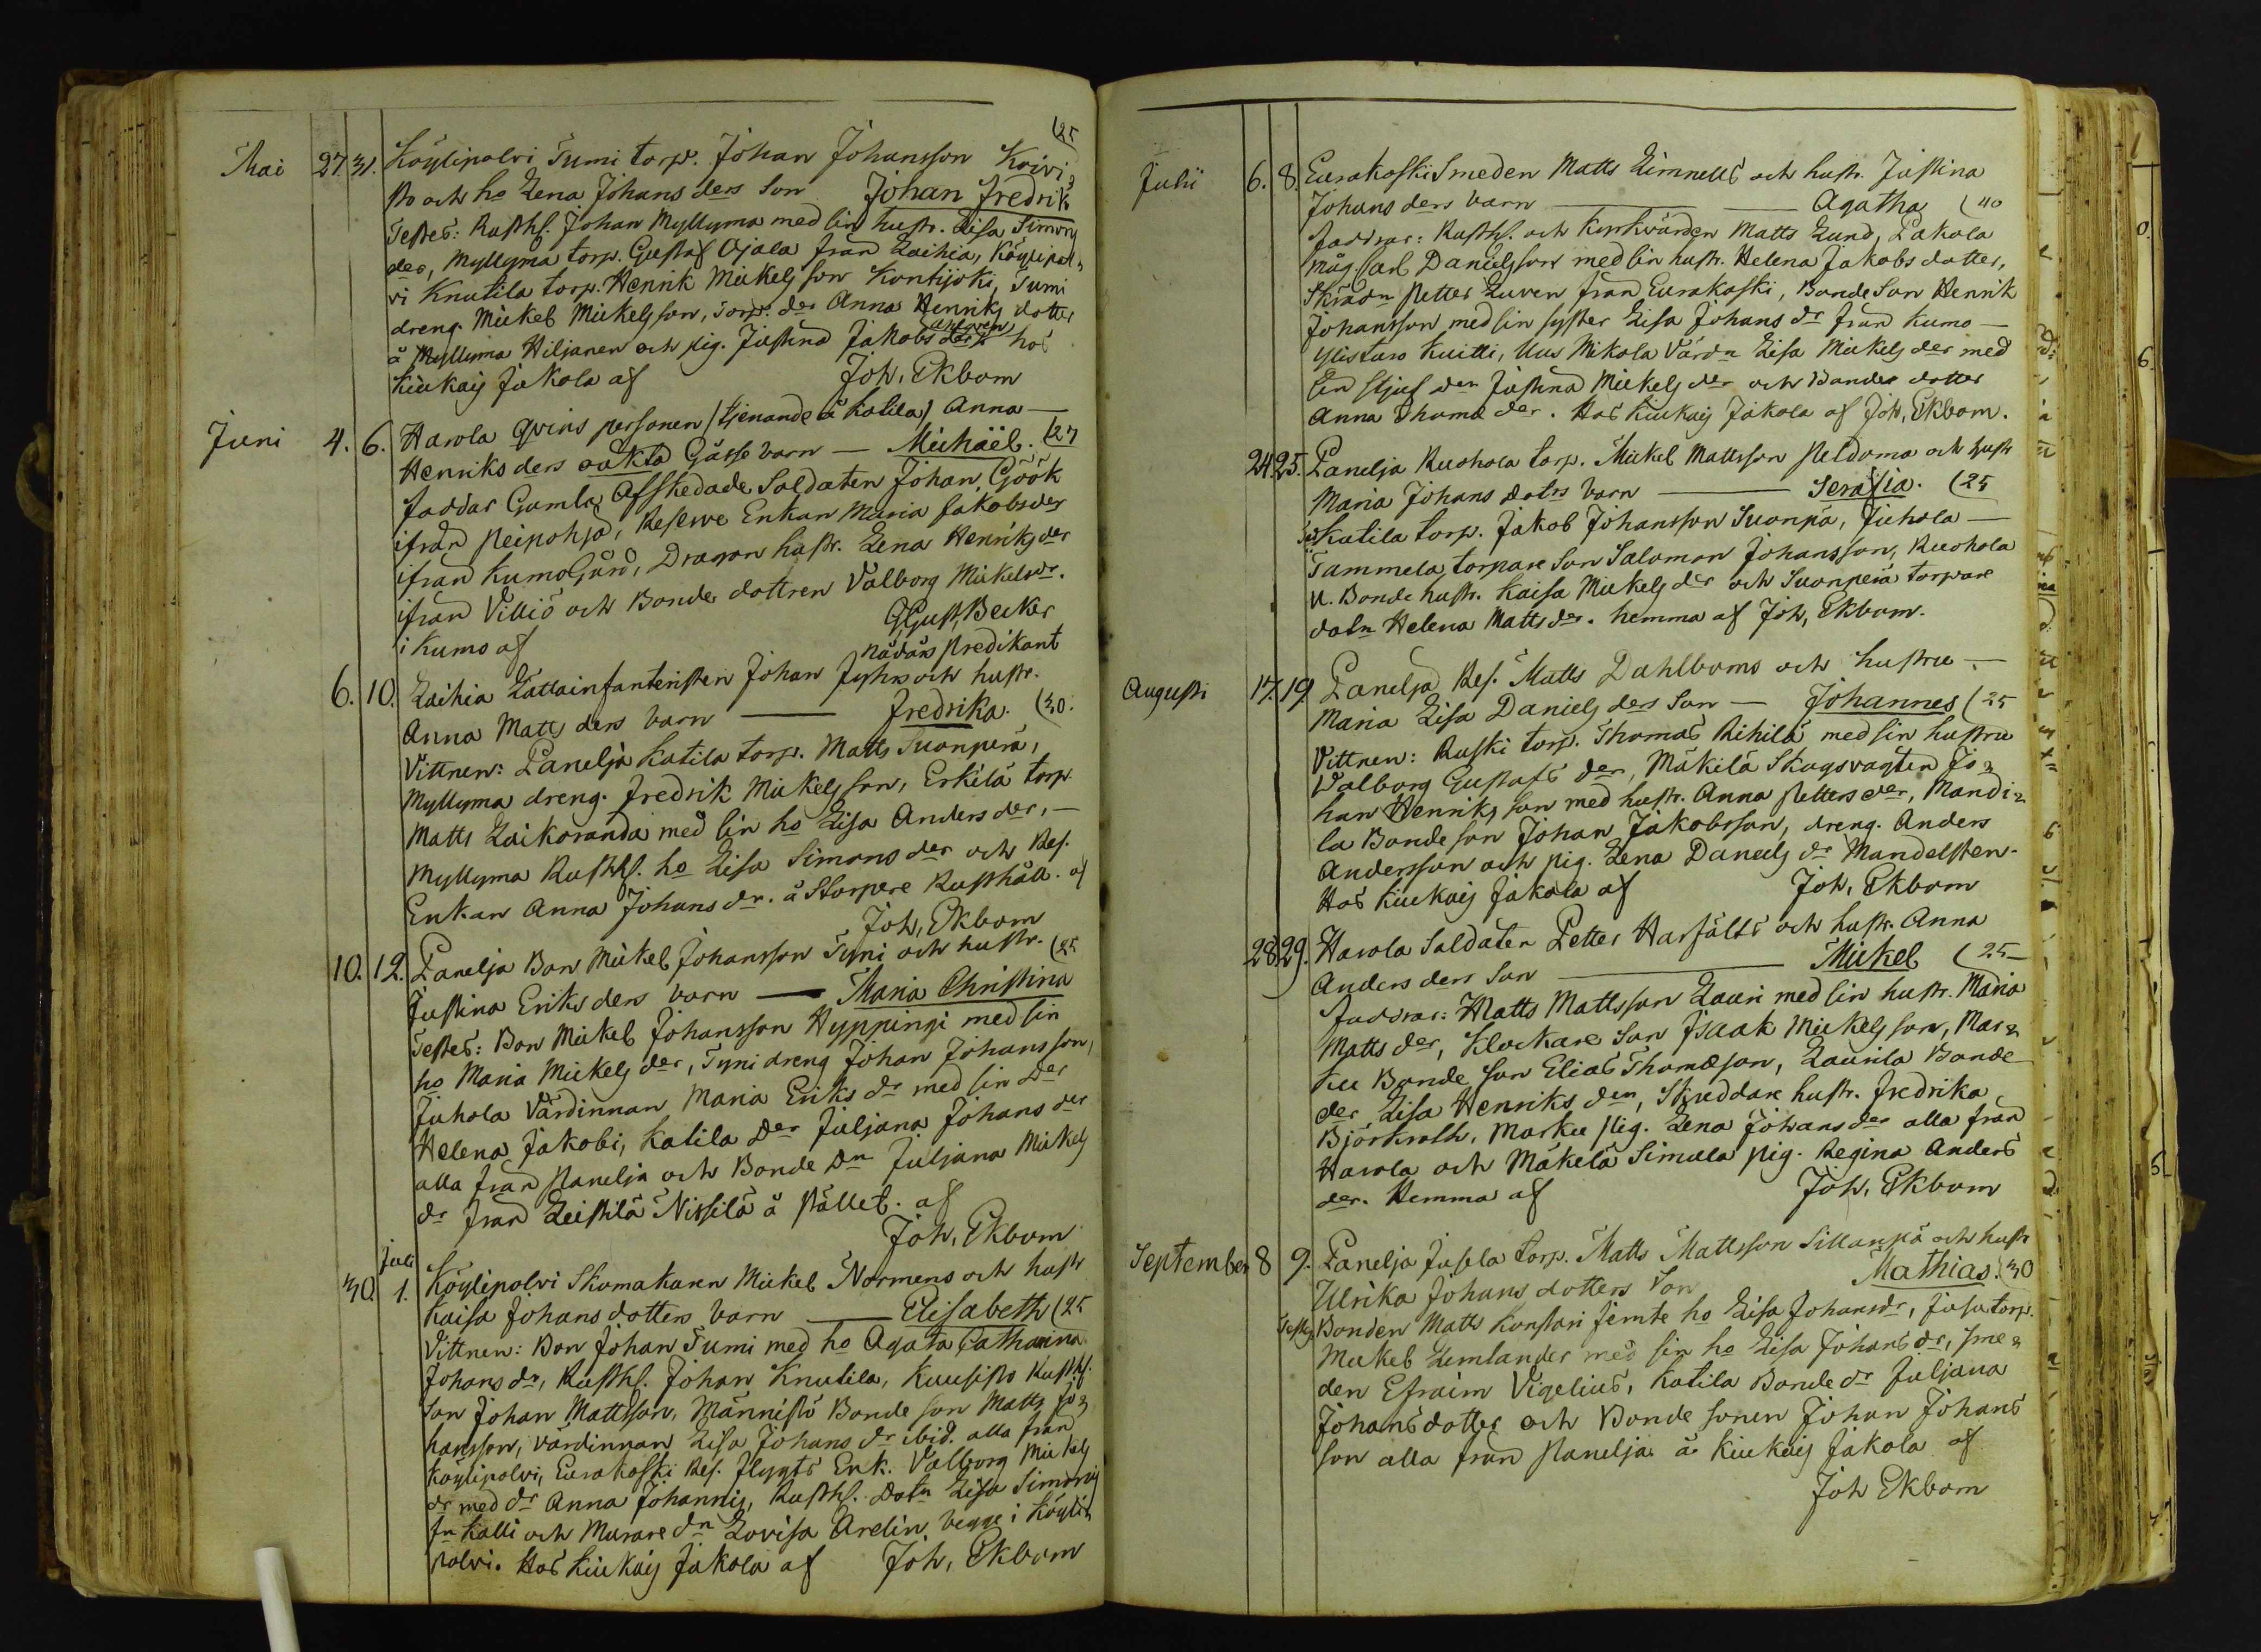 Mai 27. 31. Köylipolvi Tumi torp. Johan Johansson Koivi= (25
sto och ho Lena Johans ders Son Johan Fredrik
Testes: Rusthl. Johan Myllymä med sin hustr. Lisa Simons
der, Myllymä torp. Gustaf Ojala från Laihia, Köylipol=
vi Knutila torp. Henrik Mickelsson Kontijoki, Tumi
dreng. Mickel Mickelsson, Torp. der Anna Henriks dotter
å Myllymä Hiljanen och pig. Justina Jakobs der hos
Kiukais Jakola af Joh. Ekbom
Juni 4. 6. Harola Qvins personen (tjenande å Katila) Anna —
Henriks ders oäkta Gåsse barn — Michaël. (27
Faddar Gamla Afskedade Soldaten Johan Göök
ifrån Peipohja, Reserve Enkan Maria Jakobsder
ifrån Kumo Gård, Dragon hustr. Lena Henriks der
ifrån Villiö och Bonde dottren Valborg Mickelsdr.
i Kumo af G Gust. Becker
nådårs Predikant
6. 10. Laihia Lättainfanteristen Johan och hustr.
Anna Matts ders barn — Fredrika. (30.
Vittnen: Panelja Katila torp. Matts Suonperä,
Myllymä dreng. Fredrik Mickelsson, Erkilä torp.
Matts Laikoranda med sin ho Lisa Anders der, —
Myllymä Rusthl. ho Lisa Simons der och Res.
Enkan Anna Johans dr. å Storpere Rusthåll. af
Joh. Ekbom
10. 12. Panelja Bon Mickel Johansson Tyni och hustr. (25
Justina Eriks ders barn — Maria Christina
Testes: Bon Mickel Johansson Hyppingi med sin
ho Maria Mickels der, Tyni dreng Johan Johansson,
Juhola Värdinnan Maria Eriks dr med sin Der
Helena Jakobi, Katila Der Juljana Johans der
alla från Panelja och Bonde Dn Juljana Mickels
dr från Leistilä Nissilä å stället. af
Joh. Ekbom
30. Juli 1. Köylipolvi Skomakaren Mickel Normens och hustr
Kaisa Johans dotters barn — Elisabeth (25
Vittnen: Bon Johan Tumi med ho Agata Catharina
Johans dr, Rusthl. Johan Knutila, Kuusisto Rusthl.
Son Johan Mattsson, Männistö Bonde son Matts Jo=
hansson, värdinnan Lisa Johans dr ibid. alla från
Köylipolvi, Eurakoski Res. Flygts Enk. Valborg Mickels
dr med dr Anna Johannis, Rusthl. Dotn Lisa Simonis
fn Kalli och Murare dn Lovisa Arelin begge i Köyli=
polvi. Hos Kiukais Jakola af Joh. Ekbom
Julii 6. 8. Eurakoski Smeden Matts Limnells och hustr. Justina
Johans ders barn — Agatha (40
Faddrar: Rusthl. och Kyrkvärden Matts Lund, Pakola
Måg. Carl Danielsson med sin hustr. Helena Jakobs dotter,
Skrädn Petter Luren från Eurakoski, Bonde Son Henrik
Johansson med sin syster Lisa Johans dr från Kumo —
Ylistaro Kuitti, Uus Mikola Värdn Lisa Mickels der med
sin stjuf der Justina Mickels der och Bonde dotter
Anna Thomæ der. Hos Kiukais Jakola af Joh. Ekbom.
24. 25. Panelja Ruohola torp. Mickel Mattsson Peldoma och hustr
Maria Johans dotrs barn — Serafia. (25
Katila torp. Jakob Johansson Suonpä, Juhola —
Tammela torpare Son Salomon Johansson, Ruohola
N. Bonde hustr. Kaisa Mickels der och Suonperä torpare
dotn Helena Matts der. hemma af Joh. Ekbom.
Augusti 17. 19. Panelja Res. Matts Dahlboms och hustru —
Maria Lisa Daniels der Son — Johannes (25
Vittnen: Ruski torp. Thomas Rihilä med sin hustru
Valborg Gustafs der, Mäkilä Skogsvagten Jo=
han Henriksson med hustr. Anna Petters der, Mandi=
la Bonde son Johan Jakobsson, dreng. Anders
Andersson och pig. Lena Daniels dr Mandelsten.
Hos Kiukais Jakola af Joh. Ekbom
28. 29. Harola Soldaten Petter Harfälts och hustr. Anna
Anders ders Son — Mickel (25
Faddrar: Matts Mattsson Lauri med sin hustr. Maria
Matts der, Klockare Son Isaak Mickelsson, Mar=
ku Bonde son Elias Thomæson, Laurila Bonde
der Lisa Henriks der, Skreddare hustr. Fredrika
Björkroth, Marku pig. Lena Johans der alla från
Harola och Mäkelä Simula pig. Regina Anders
der. Hemma af Joh. Ekbom
September 8 9. Panelja Jusela torp. Matts Mattsson Sillanpä och hustr
Ulrika Johans dotters Son Mathias. (30
Testes Bonden Matts Konstari jemte ho Lisa Johansdr, Jusu torp.
Mickel Lemlander med sin ho Lisa Johans dr, sme=
den Efraim Vigelius, Katila Bonde dr Juljana
Johans dotter och Bonde sonen Johan Johans
son alla från Panelja å Kiukais Jakola af
Joh Ekbom